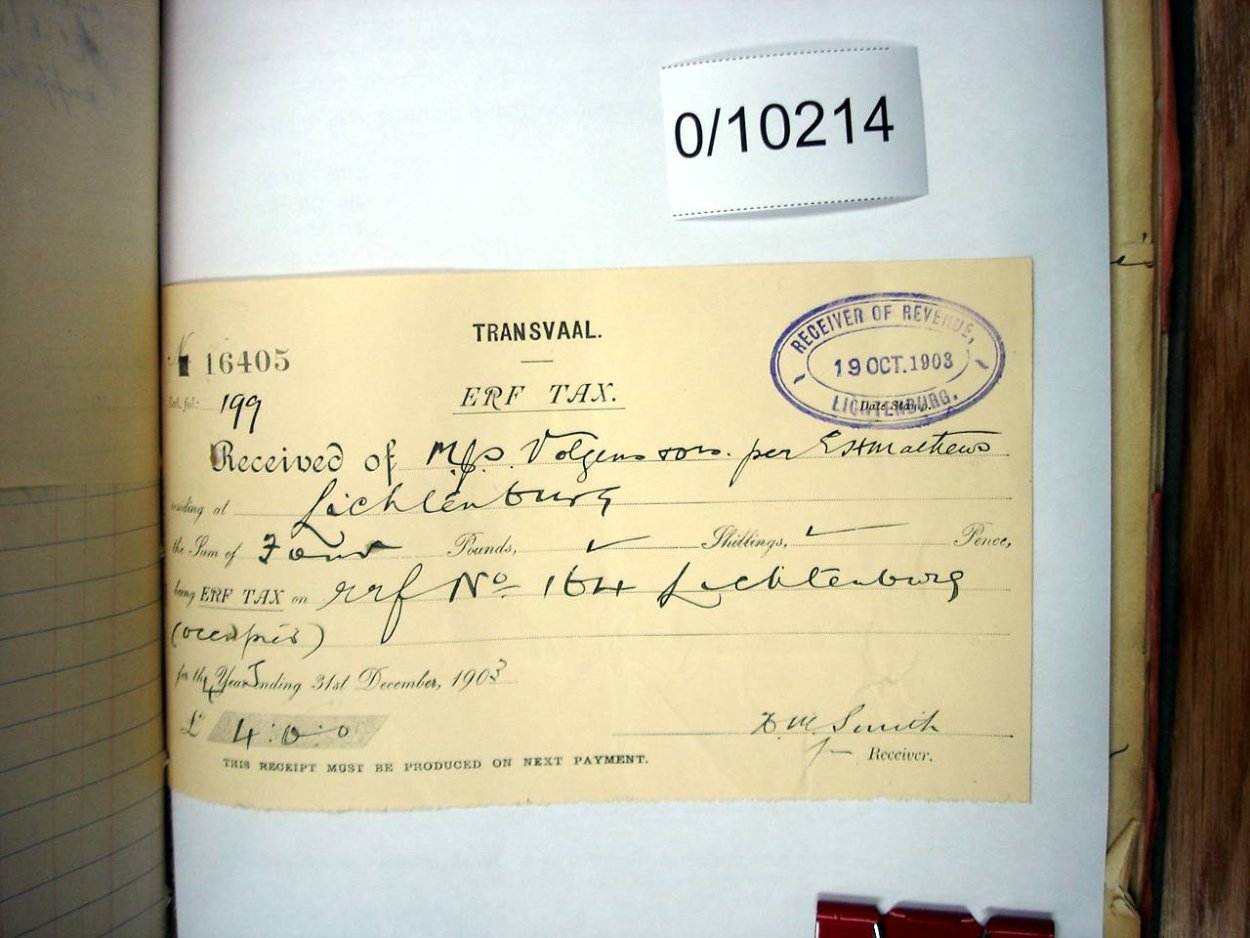 0/10214
TRANSVAAL.
RECEIVER OF REVENUE,
19 OCT. 1903
LICHTENBURG.
Date Stamp.
№ 16405
ERF TAX.
fol: 199
Received of per E H Mathews
residing at Lichtenburg
the Sum of Four Pounds, Shillings, Pence,
being ERF TAX on Erf No 164 Lichtenburg
(occupied)
for the 4 Years Ending 31st December, 1903
£ 4:0:0
Smith
Receiver.
THIS RECEIPT MUST BE PRODUCED ON NEXT PAYMENT.